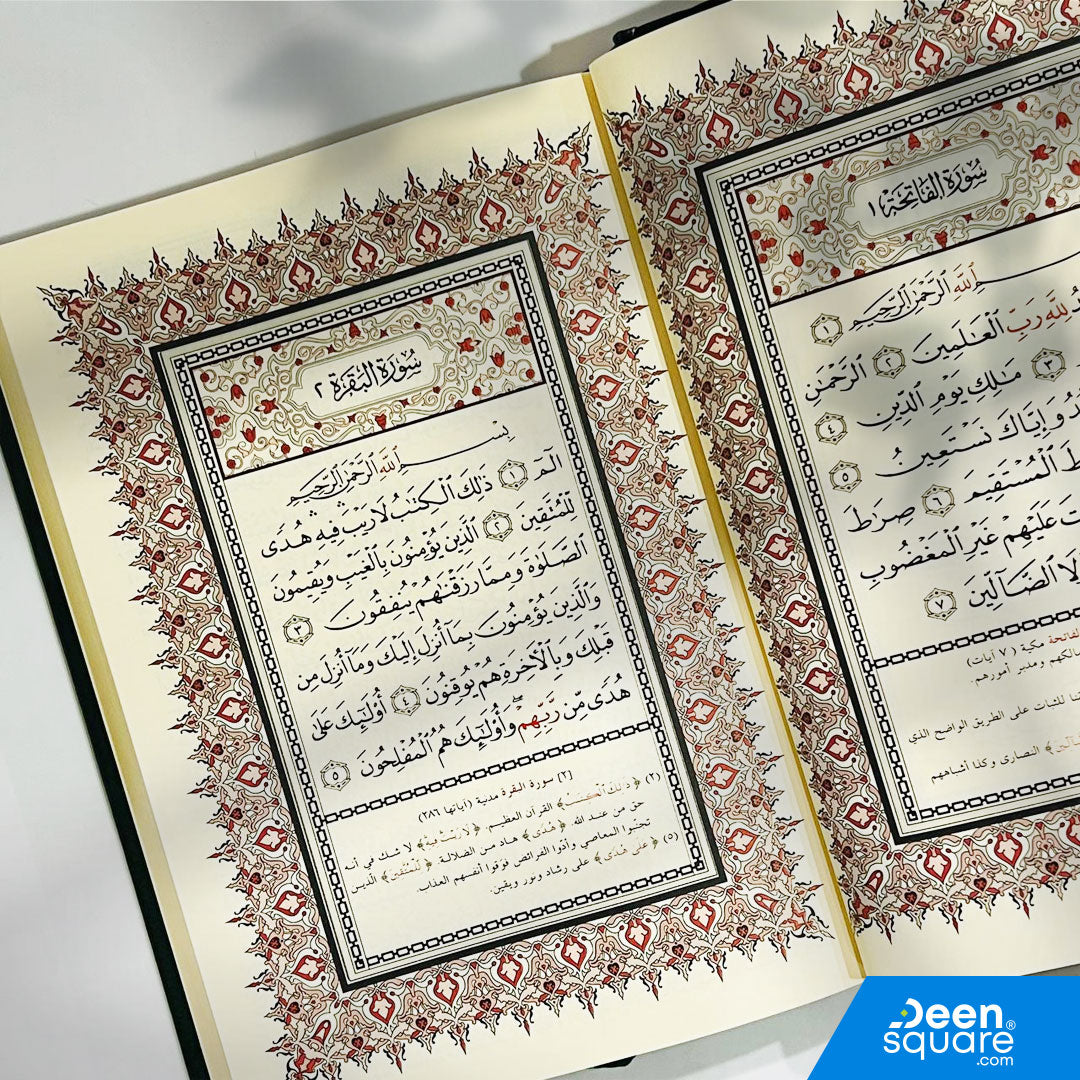 سُورَةُ الفَاتِحَة ١
ـسـمِ ٱللَّهِ ٱلرَّحْمَٰنِ ٱلرَّحِيمِ ١
لِلَّهِ رَبِّ ٱلْعَٰلَمِينَ ٢ ٱلرَّحْمَٰنِ
٣ مَٰلِكِ يَوْمِ ٱلدِّينِ ٤
وَإِيَّاكَ نَسْتَعِينُ ٥
ٱلْمُسْتَقِيمَ ٦ صِرَٰطَ
عَلَيْهِمْ غَيْرِ ٱلْمَغْضُوبِ
ٱلضَّآلِّينَ ٧
الفاتحة مكية (٧ آيات)
ومدبر أمورهم.
للثبات على الطريق الواضح الذي
النصارى وكذا أشباههم
سُورَةُ البَقَرَة ٢
بِسْمِ ٱللَّهِ ٱلرَّحْمَٰنِ ٱلرَّحِيمِ
الٓمٓ ١ ذَٰلِكَ ٱلْكِتَٰبُ لَا رَيْبَ فِيهِ هُدًى
لِّلْمُتَّقِينَ ٢ ٱلَّذِينَ يُؤْمِنُونَ بِٱلْغَيْبِ وَيُقِيمُونَ
ٱلصَّلَوٰةَ وَمِمَّا رَزَقْنَٰهُمْ يُنفِقُونَ ٣
وَٱلَّذِينَ يُؤْمِنُونَ بِمَآ أُنزِلَ إِلَيْكَ وَمَآ أُنزِلَ مِن
قَبْلِكَ وَبِٱلْأَخِرَةِ هُمْ يُوقِنُونَ ٤ أُو۟لَٰٓئِكَ عَلَىٰ
هُدًى مِّن رَّبِّهِمْ ۖ وَأُو۟لَٰٓئِكَ هُمُ ٱلْمُفْلِحُونَ ٥
[٢] سورة البقرة مدنية (آياتها ٢٨٦)
(٢) ﴿ذَٰلِكَ ٱلْكِتَٰبُ﴾ القرآن العظيم. ﴿لَا رَيْبَ فِيهِ﴾ لا شك في أنه
حق من عند الله. ﴿هُدًى﴾ هاد من الضلالة. ﴿لِّلْمُتَّقِينَ﴾ الذين
تجنبوا المعاصي وأدّوا الفرائض فوَقَوا أنفسهم العذاب.
(٥) ﴿عَلَىٰ هُدًى﴾ على رشاد ونور ويقين.
Deen®
square
.com